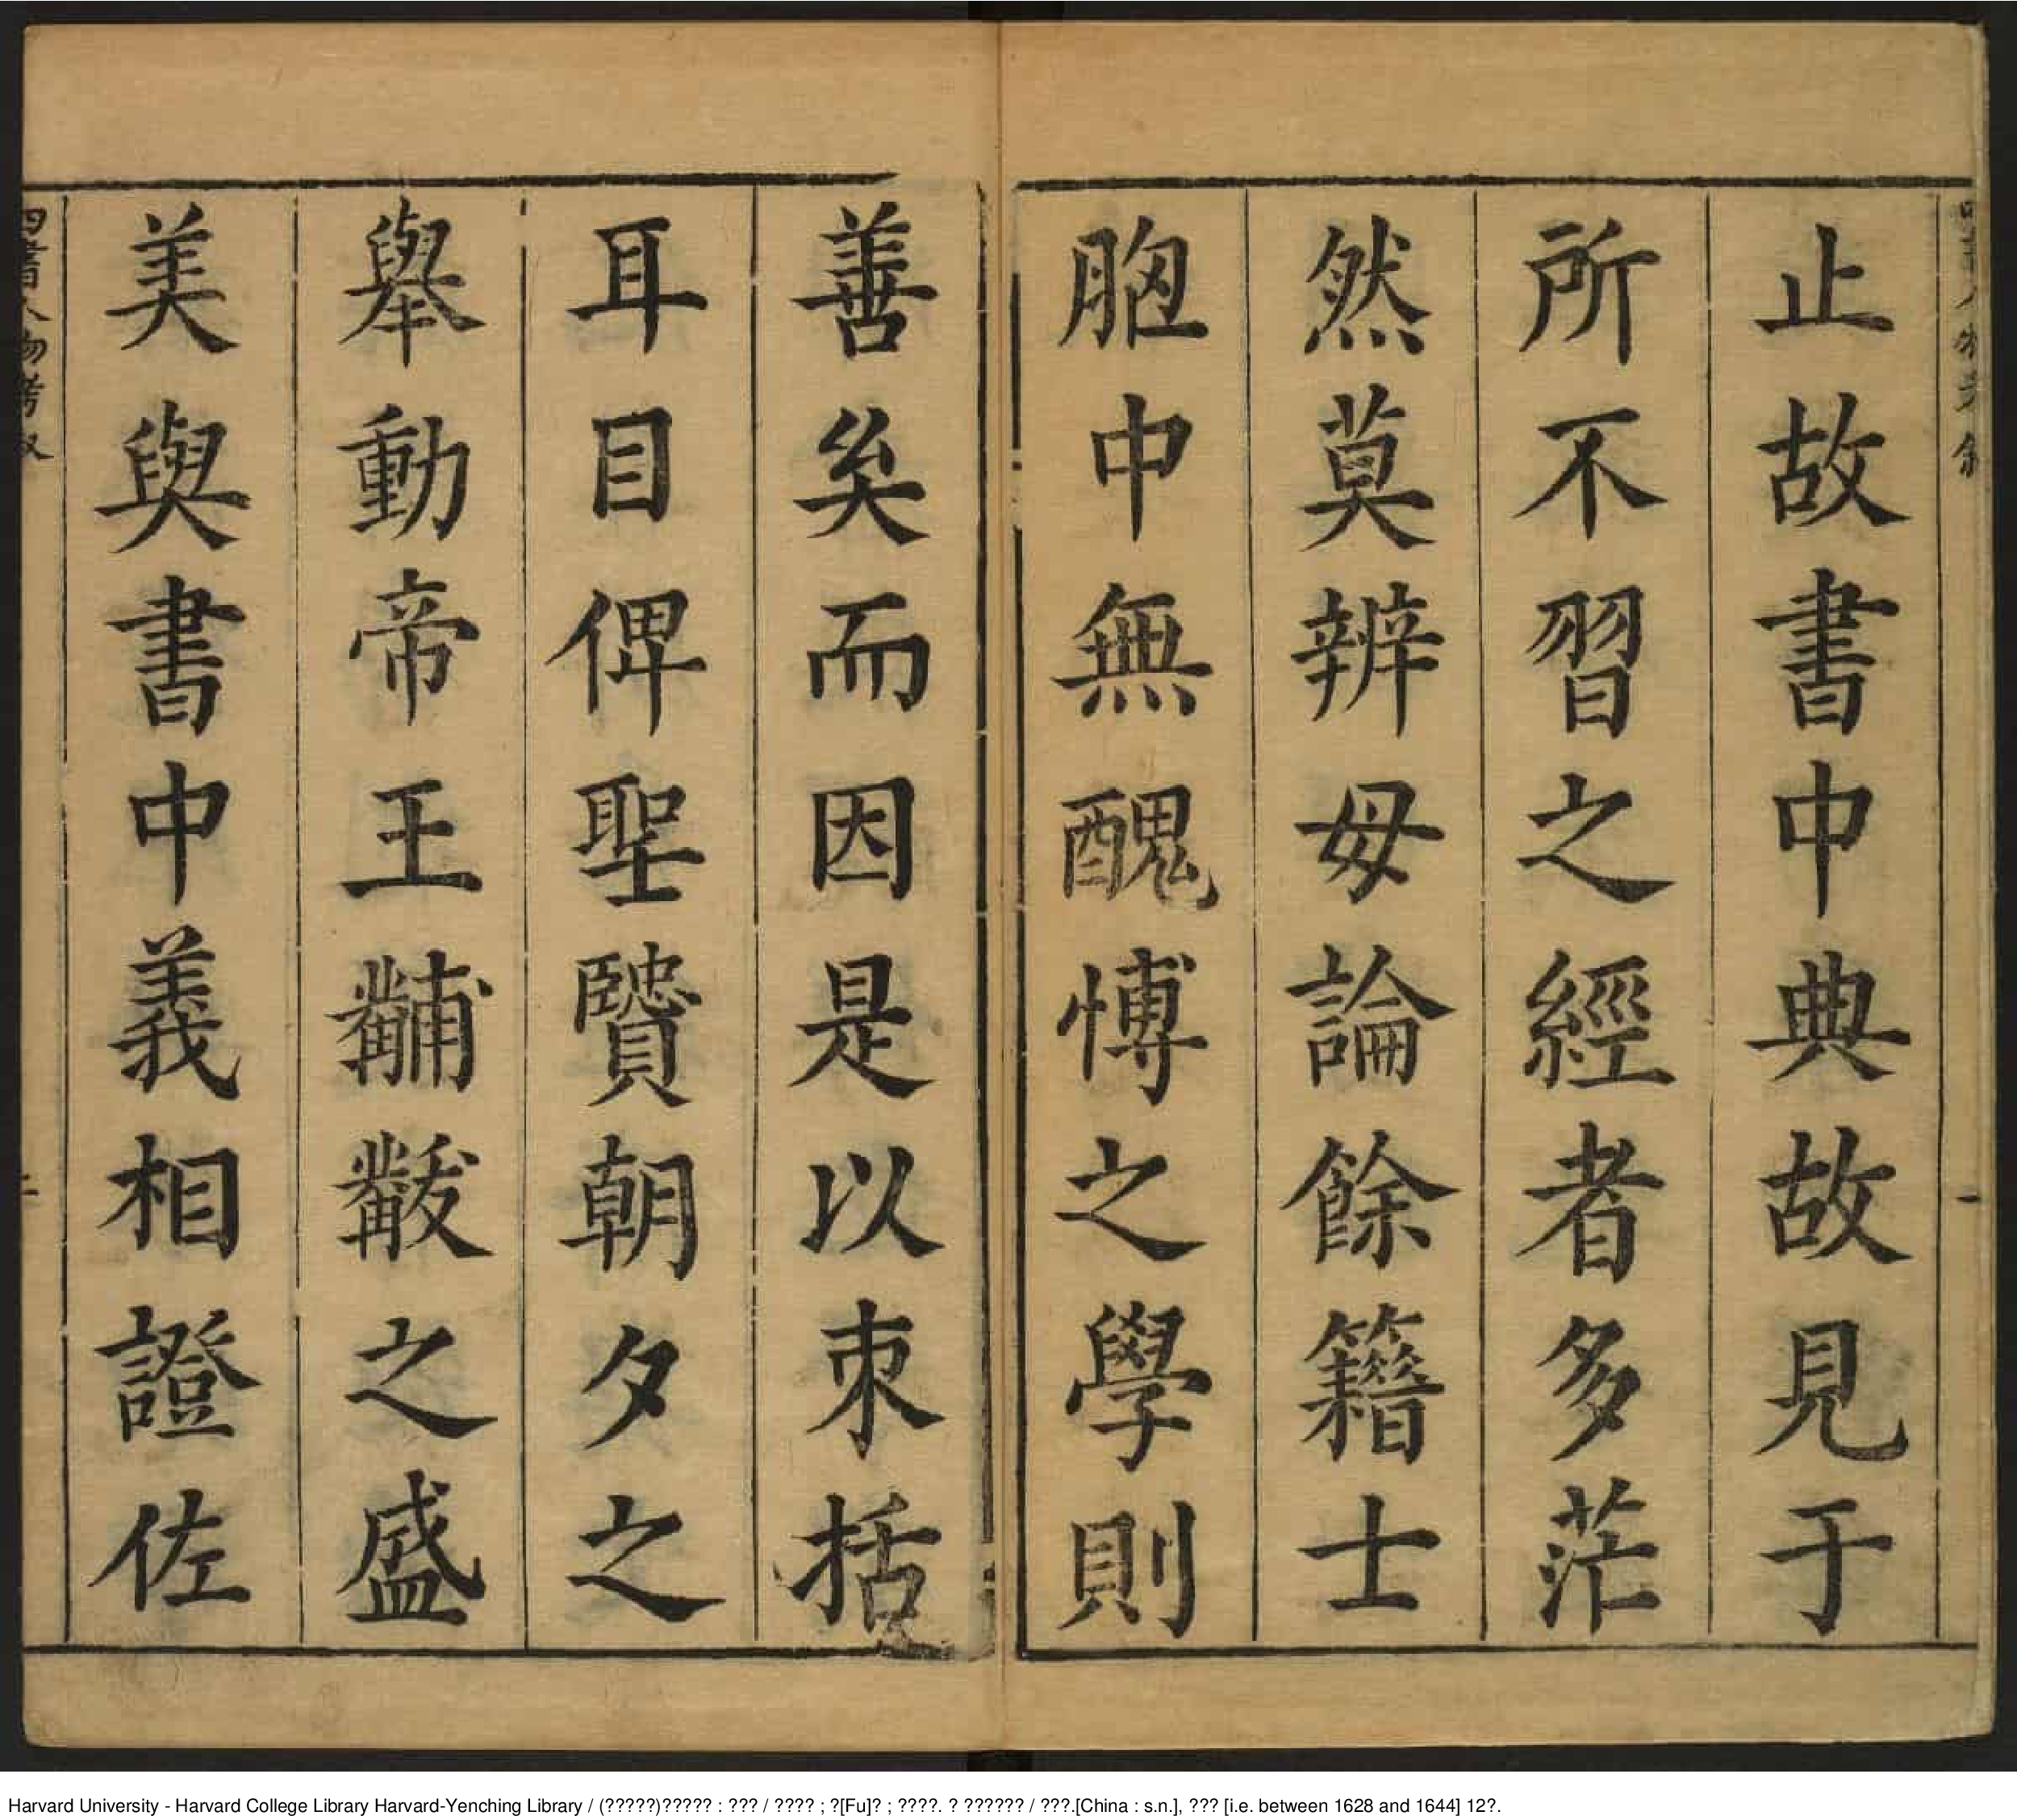 止故書中典故見于
所不習之經者多茫
然莫辨毋論餘籍士
胞中無醜愽之學則
善矣而因是以朿括
耳目俾聖賢朝夕之
舉動帝王黼黻之盛
美與書中義相證佐
四書人物考叙
二
Harvard University - Harvard College Library Harvard-Yenching Library / (?????)????? : ??? / ???? ; ?[Fu]? ; ????. ? ?????? / ???.[China : s.n.], ??? [i.e. between 1628 and 1644] 12?.